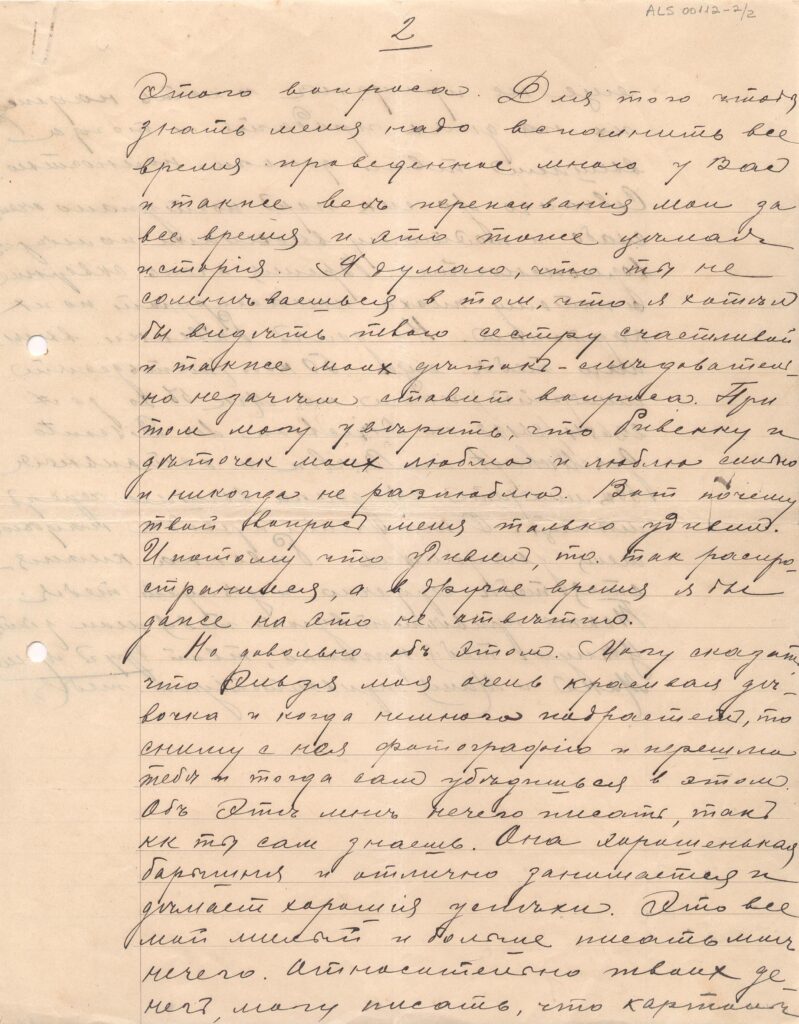 ALS 00112-2/2
2
Этого вопроса. Для того чтобы
знать меня надо вспомнить все
время проведенное мною у Вас
и также весь переживанія мои за
все время и это тоже целая
исторія. Я думаю, что ты не
сомнѣваешься в том, что я хотѣл
бы видѣть твою сестру счастливой
и также моих дѣток - слѣдователь-
но незачѣм ставит вопроса. При
том могу увѣрить, что Ривекку и
дѣточек моих люблю и люблю сильно
и никогда не разлюблю. Вот почему
твой вопрос меня только удивил.
И потому что удивил, то так распро-
странился, а в другое время я бы
даже на это не отвѣтил.
Но довольно объ этом. Могу сказать,
что Эльзя моя очень красивая дѣ-
вочка и когда немного подрастет, то
сниму с нея фотографію и перешлю
тебѣ и тогда сам убѣдишься в этом.
Объ Этѣ мнѣ нечего писать, такъ
кк ты сам знаешь. Она хорошенькая
барышня и отлично занимается и
дѣлает хорошія успѣхи. Это все
мой милый и больше писать мнѣ
нечего. Относительно твоих де-
нег, могу писать, что